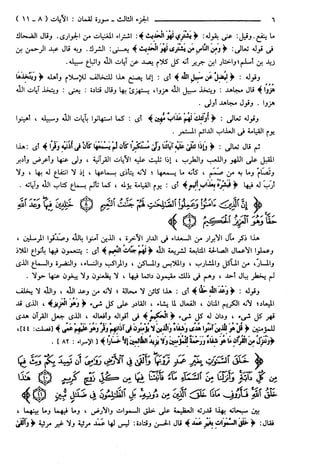 ٦ ــــ الجزء الثالث ـ سورة لقمان : الآيات ( ٨ ـ ١١ )
ما ينفع. وقيل: عنى بقوله: ﴿ يشتري لهو الحديث ﴾: اشتراء المغنيات من الجواري. وقال الضحاك
في قوله تعالى: ﴿ ومن الناس من يشتري لهو الحديث ﴾ يعني: الشرك. وبه قال عبد الرحمن بن
زيد بن أسلم، واختار ابن جرير أنه كل كلام يصد عن آيات الله واتباع سبيله.
وقوله : ﴿ ليضل عن سبيل الله ﴾ أي : إنما يصنع هذا للتخالف للإسلام وأهله ﴿ ويتخذها
هزوا ﴾ قال مجاهد : ويتخذ سبيل الله هزوا، يستهزئ بها وقال قتادة : يعني : ويتخذ آيات الله
هزوا . وقول مجاهد أولى .
وقوله تعالى : ﴿ أولئك لهم عذاب مهين ﴾ أي : كما استهانوا بآيات الله وسبيله ، أهينوا
يوم القيامة في العذاب الدائم المستمر .
ثم قال تعالى : ﴿ وإذا تتلى عليه آياتنا ولى مستكبرا كأن لم يسمعها كأن في أذنيه وقرا ﴾ أي : هذا
المقبل على اللهو واللعب والطرب ، إذا تليت عليه الآيات القرآنية ، ولى عنها وأعرض وأدبر
وتصامّ وما به من صمم ، كأنه ما يسمعها ، لأنه يتأذى بسماعها ، إذ لا انتفاع له بها ، ولا
أرب له فيها ﴿ فبشره بعذاب أليم ﴾ أي : يوم القيامة يؤلمه ، كما تألم بسماع كتاب الله وآياته .
إن الذين آمنوا وعملوا الصالحات لهم جنات النعيم ۝ خالدين فيها وعد الله
حقا وهو العزيز الحكيم ۝
هذا ذكر مآل الأبرار من السعداء في الدار الآخرة ، الذين آمنوا بالله وصدقوا المرسلين ،
وعملوا الأعمال الصالحة المتابعة لشريعة الله ﴿ لهم جنات النعيم ﴾ أي : يتنعمون فيها بأنواع الملاذ
والمسار ، من المآكل والمشارب ، والملابس والمساكن ، والمراكب والنساء ، والنضرة والسماع الذي
لم يخطر ببال أحد ، وهم في ذلك مقيمون دائما فيها ، لا يظعنون ولا يبغون عنها حولا .
وقوله : ﴿ وعد الله حقا ﴾ أي : هذا كائن لا محالة ؛ لأنه من وعد الله ، والله لا يخلف
الميعاد؛ لأنه الكريم المنان ، الفعال لما يشاء ، القادر على كل شيء ، ﴿ وهو العزيز ﴾ ، الذي قد
قهر كل شيء ، ودان له كل شيء ، ﴿ الحكيم ﴾ في أقواله وأفعاله ، الذي جعل القرآن هدى
للمؤمنين ﴿ قل هو للذين آمنوا هدى وشفاء والذين لا يؤمنون في آذانهم وقر وهو عليهم عمى ﴾ ( فصلت: ٤٤)،
﴿ وننزل من القرآن ما هو شفاء ورحمة للمؤمنين ولا يزيد الظالمين إلا خسارا ﴾ ( الإسراء : ٨٢ ) .
خلق السموات بغير عمد ترونها وألقى في الأرض رواسي أن تميد بكم وبث فيها
من كل دابة وأنزلنا من السماء ماء فأنبتنا فيها من كل زوج كريم ۝
هذا خلق الله فأروني ماذا خلق الذين من دونه بل الظالمون في ضلال مبين ۝
يبين سبحانه بهذا قدرته العظيمة على خلق السموات والأرض ، وما فيهما وما بينهما ،
فقال: ﴿ خلق السموات بغير عمد ﴾ قال الحسن وقتادة: ليس لها عمد مرئية ولا غير مرئية ﴿ وألقى